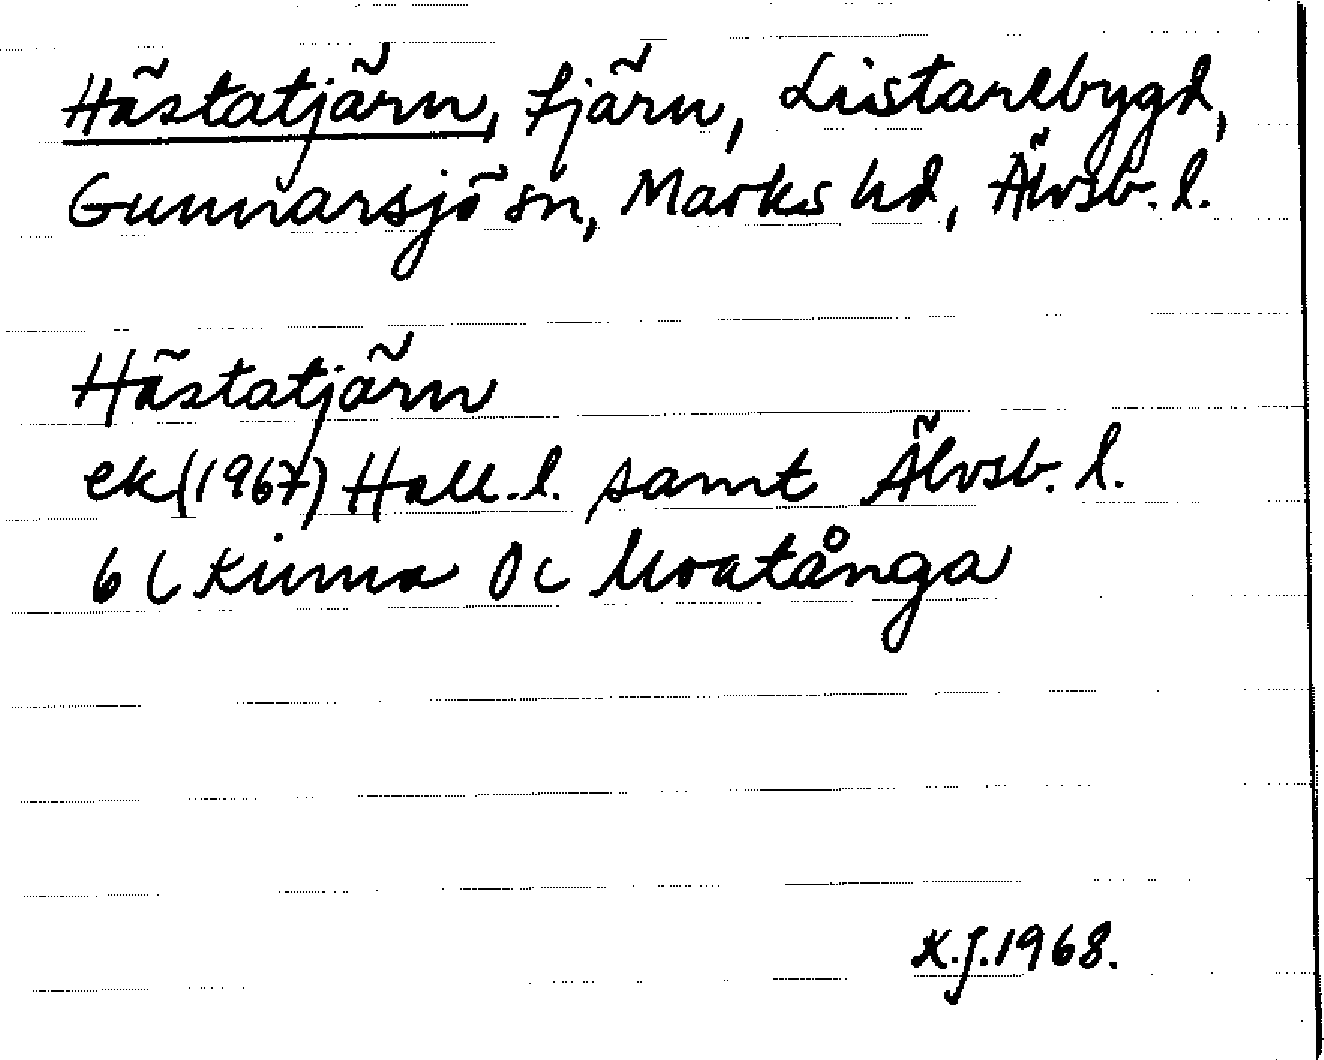 Hästatjärn, tjärn, Listarebygd,
Gunnarsjö sn, Marks hd, Älvsb. l.
Hästatjärn
ek (1967) Hall. l. samt Älvsb. l.
6 C Kinna 0 c Mratånga
K.J. 1968.